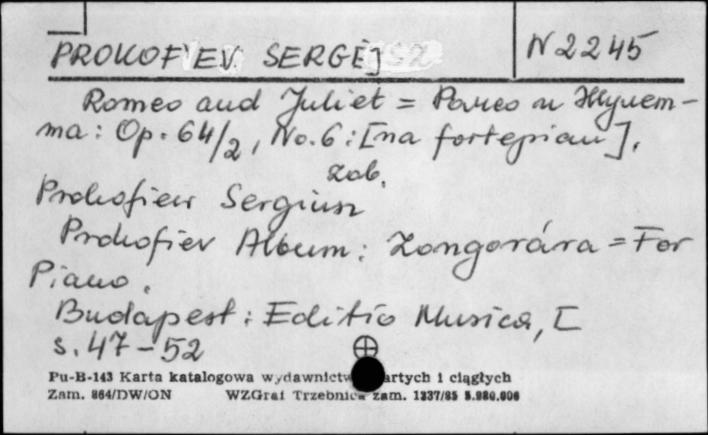 PROKOF'EV SERGEJ
N 2245
Romeo and Juliet = Ромео и Джульет-
та: Op. 64/2, No. 6: [na fortepian].
zob.
Prokofiew Sergiusz
Prokofiev Album: Zongorára = For
Piano.
Budapest: Editio Musica, [
s. 47-52
Pu-B-143 Karta katalogowa wydawnictw artych i ciągłych
Zam. 864/DW/ON WZGraf Trzebnica zam. 1337/85 5.980.000